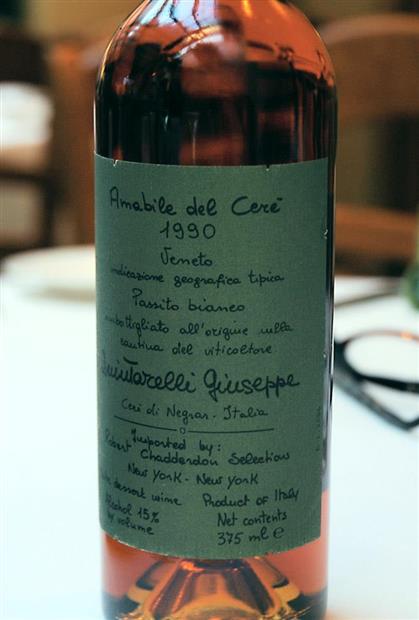 Amabile del Cerè
1990
Veneto
indicazione geografica tipica
Passito bianco
imbottigliato all'origine nella
cantina del viticoltore
Quintarelli Giuseppe
Cerè di Negrar - Italia
Imported by:
Robert Chadderdon Selections
New York - New York
dessert wine Product of Italy
Alcohol 15% Net contents
by volume 375 ml e